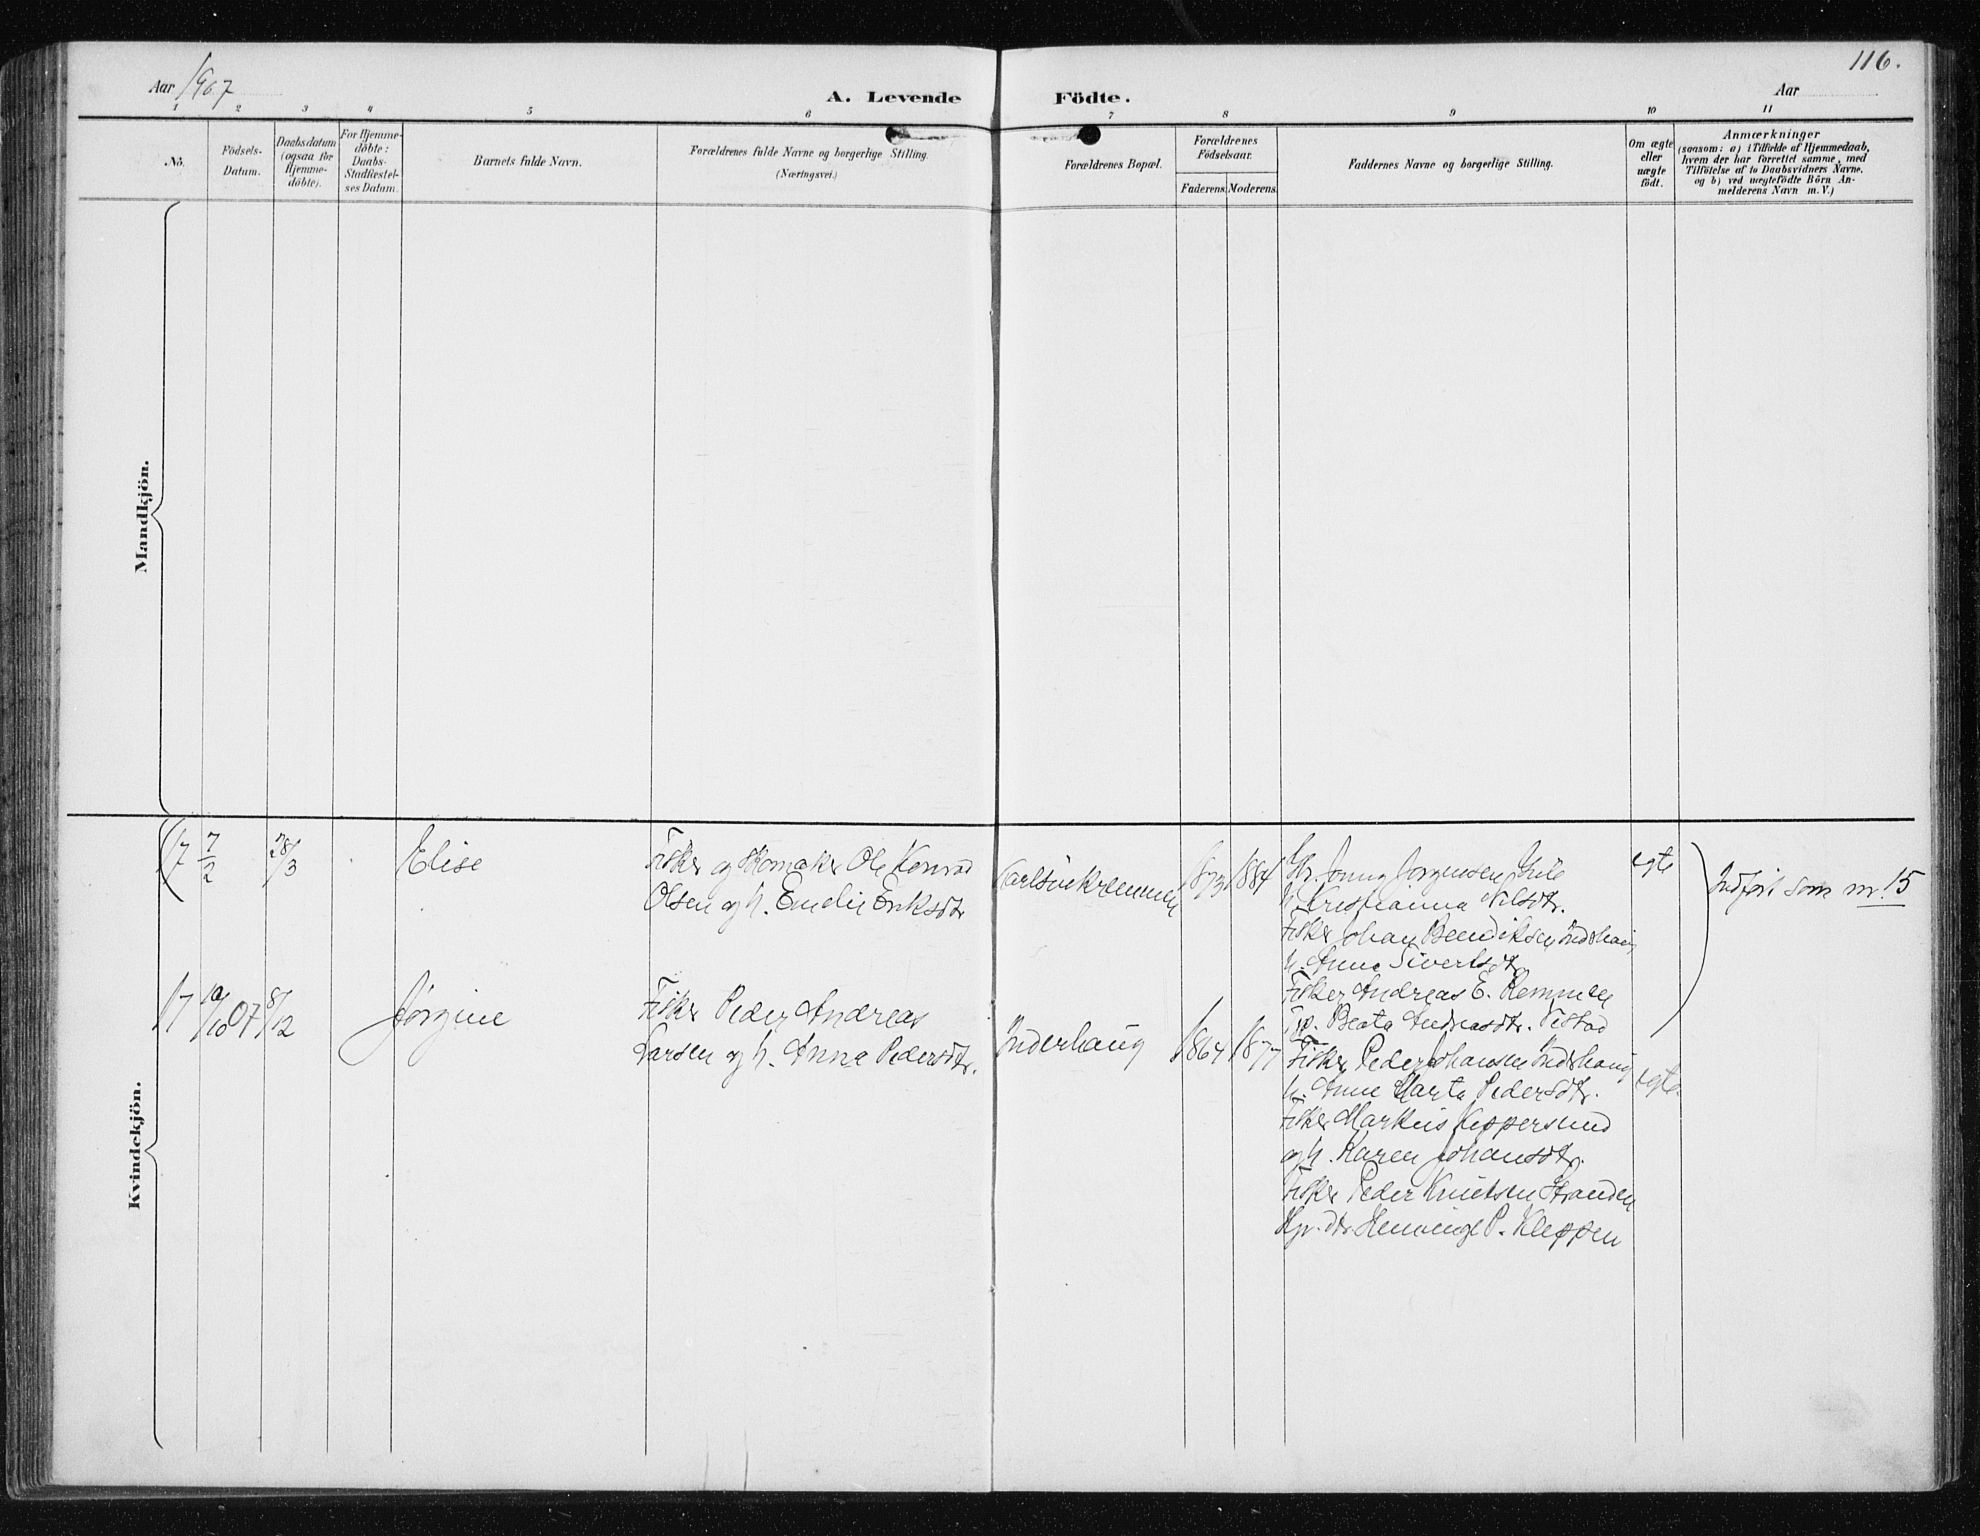 116.
Aar 1907
A. Levende Födte.
Aar
1 2 3 4 5 6 7 8 9 10 11
No.
Födsels-
Datum.
Daabsdatum
(ogsaa for
Hjemme-
döbte).
For Hjemme-
döbte:
Daabs-
Stadfæstel-
ses Datum.
Barnets fulde Navn.
Forældrenes fulde Navne og borgerlige Stilling.
(Næringsvei.)
Forældrenes Bopæl.
Forældrenes
Födselsaar.
Faderens. Moderens.
Faddernes Navne og borgerlige Stilling.
Om ægte
eller
uægte
födt.
Anmærkninger
(saasom: a) i Tilfælde af Hjemmedaab,
hvem der har forrettet samme, med
Tilföielse af to Daabsvidners Navne,
og b) ved uægtefödte Börn An-
melderens Navn m. V.)
Mandkjön.
Kvindekjön.
17 7/2 28/3
Elise
Fisker og Skomaker Ole Konrad
Olsen og h. Emelie Eriksdtr
1873 1884
Jørgensen
h. Kristianna Nilsdtr.
Fisker Johan Bendiksen Inderhaug
h. Anne Sivertsdtr
Fisker Andreas E. Remmen
Beata Andreasdtr. Vistad
egte
Indført som nr. 15
17 10/10 07 8/12
Jørgine
Fisker Peder Andreas
Larsen og h. Anna Pedersdtr.
Inderhaug
1864 1877
Fisker Peder Johansen Inderhaug
h. Anne Marta Pedersdtr.
Fisker Markus
og h. Karen Johansdtr.
Fisker Peder Knutsen Stranden
P. Kleppen
egte.